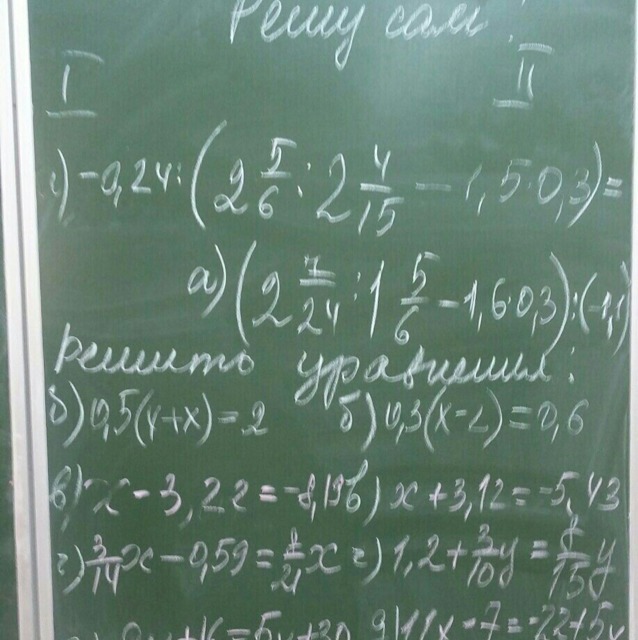 Решу сам!
I II
а) -0,24:(2 5/6 : 2 4/15 - 1,5·0,3)=
а)(2 7/24 : 1 5/6 - 1,6·0,3):(-1,1)
решить уравнения:
б) 0,5(4+x)=2 б) 0,3(x-2)=0,6
в) x-3,22=-8,19 в) x+3,12=-5,43
г) 3/14x-0,59=8/21x г) 1,2+3/10y=8/15y
+16=6x+30 11x-7=-22+5x